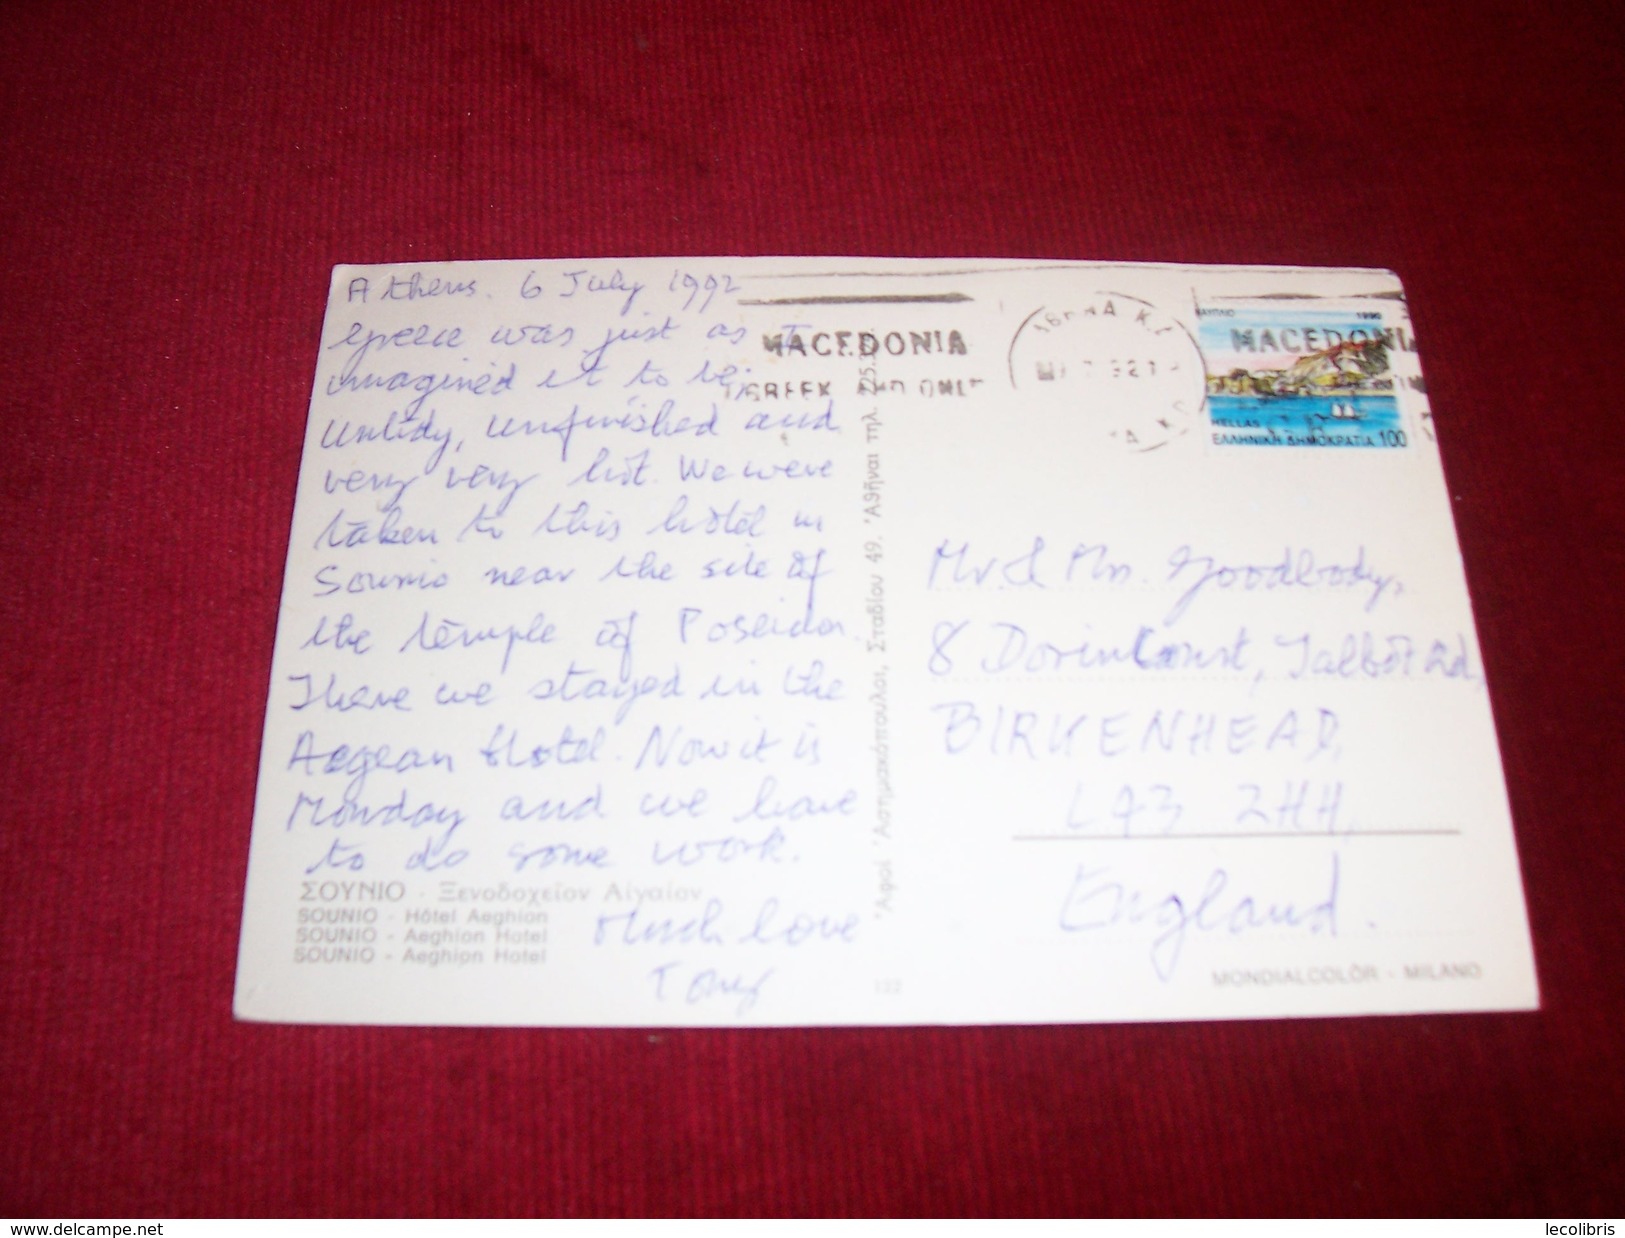 Athens. 6 July 1992
Greece was just as I
imagined it to be;
untidy, unfinished and
very very hot. We were
taken to this hotel in
Sounio near the site of
the temple of Poseidon.
There we stayed in the
Aegean Hotel. Now it is
Monday and we have
to do some work.
Much love
Tony
ΣΟΥΝΙΟ - Ξενοδοχεῖον Αἰγαῖον
SOUNIO - Hôtel Aeghion
SOUNIO - Aeghion Hotel
SOUNIO - Aeghion Hotel
MACEDONIA
GREEK AND ONLY
ΝΑΥΠΛΙΟ 1990
MACEDONIA
HELLAS
ΕΛΛΗΝΙΚΗ ΔΗΜΟΚΡΑΤΙΑ 100
Ἀφοὶ Ἀστημακόπουλοι, Σταδίου 49. Ἀθῆναι τηλ.
Mr. & Mrs. Goodbody,
8 Dorin Court, Talbot Rd,
BIRKENHEAD,
L43 2HH,
England.
122
MONDIALCOLÖR - MILANO
www.delcampe.net
lecolibris